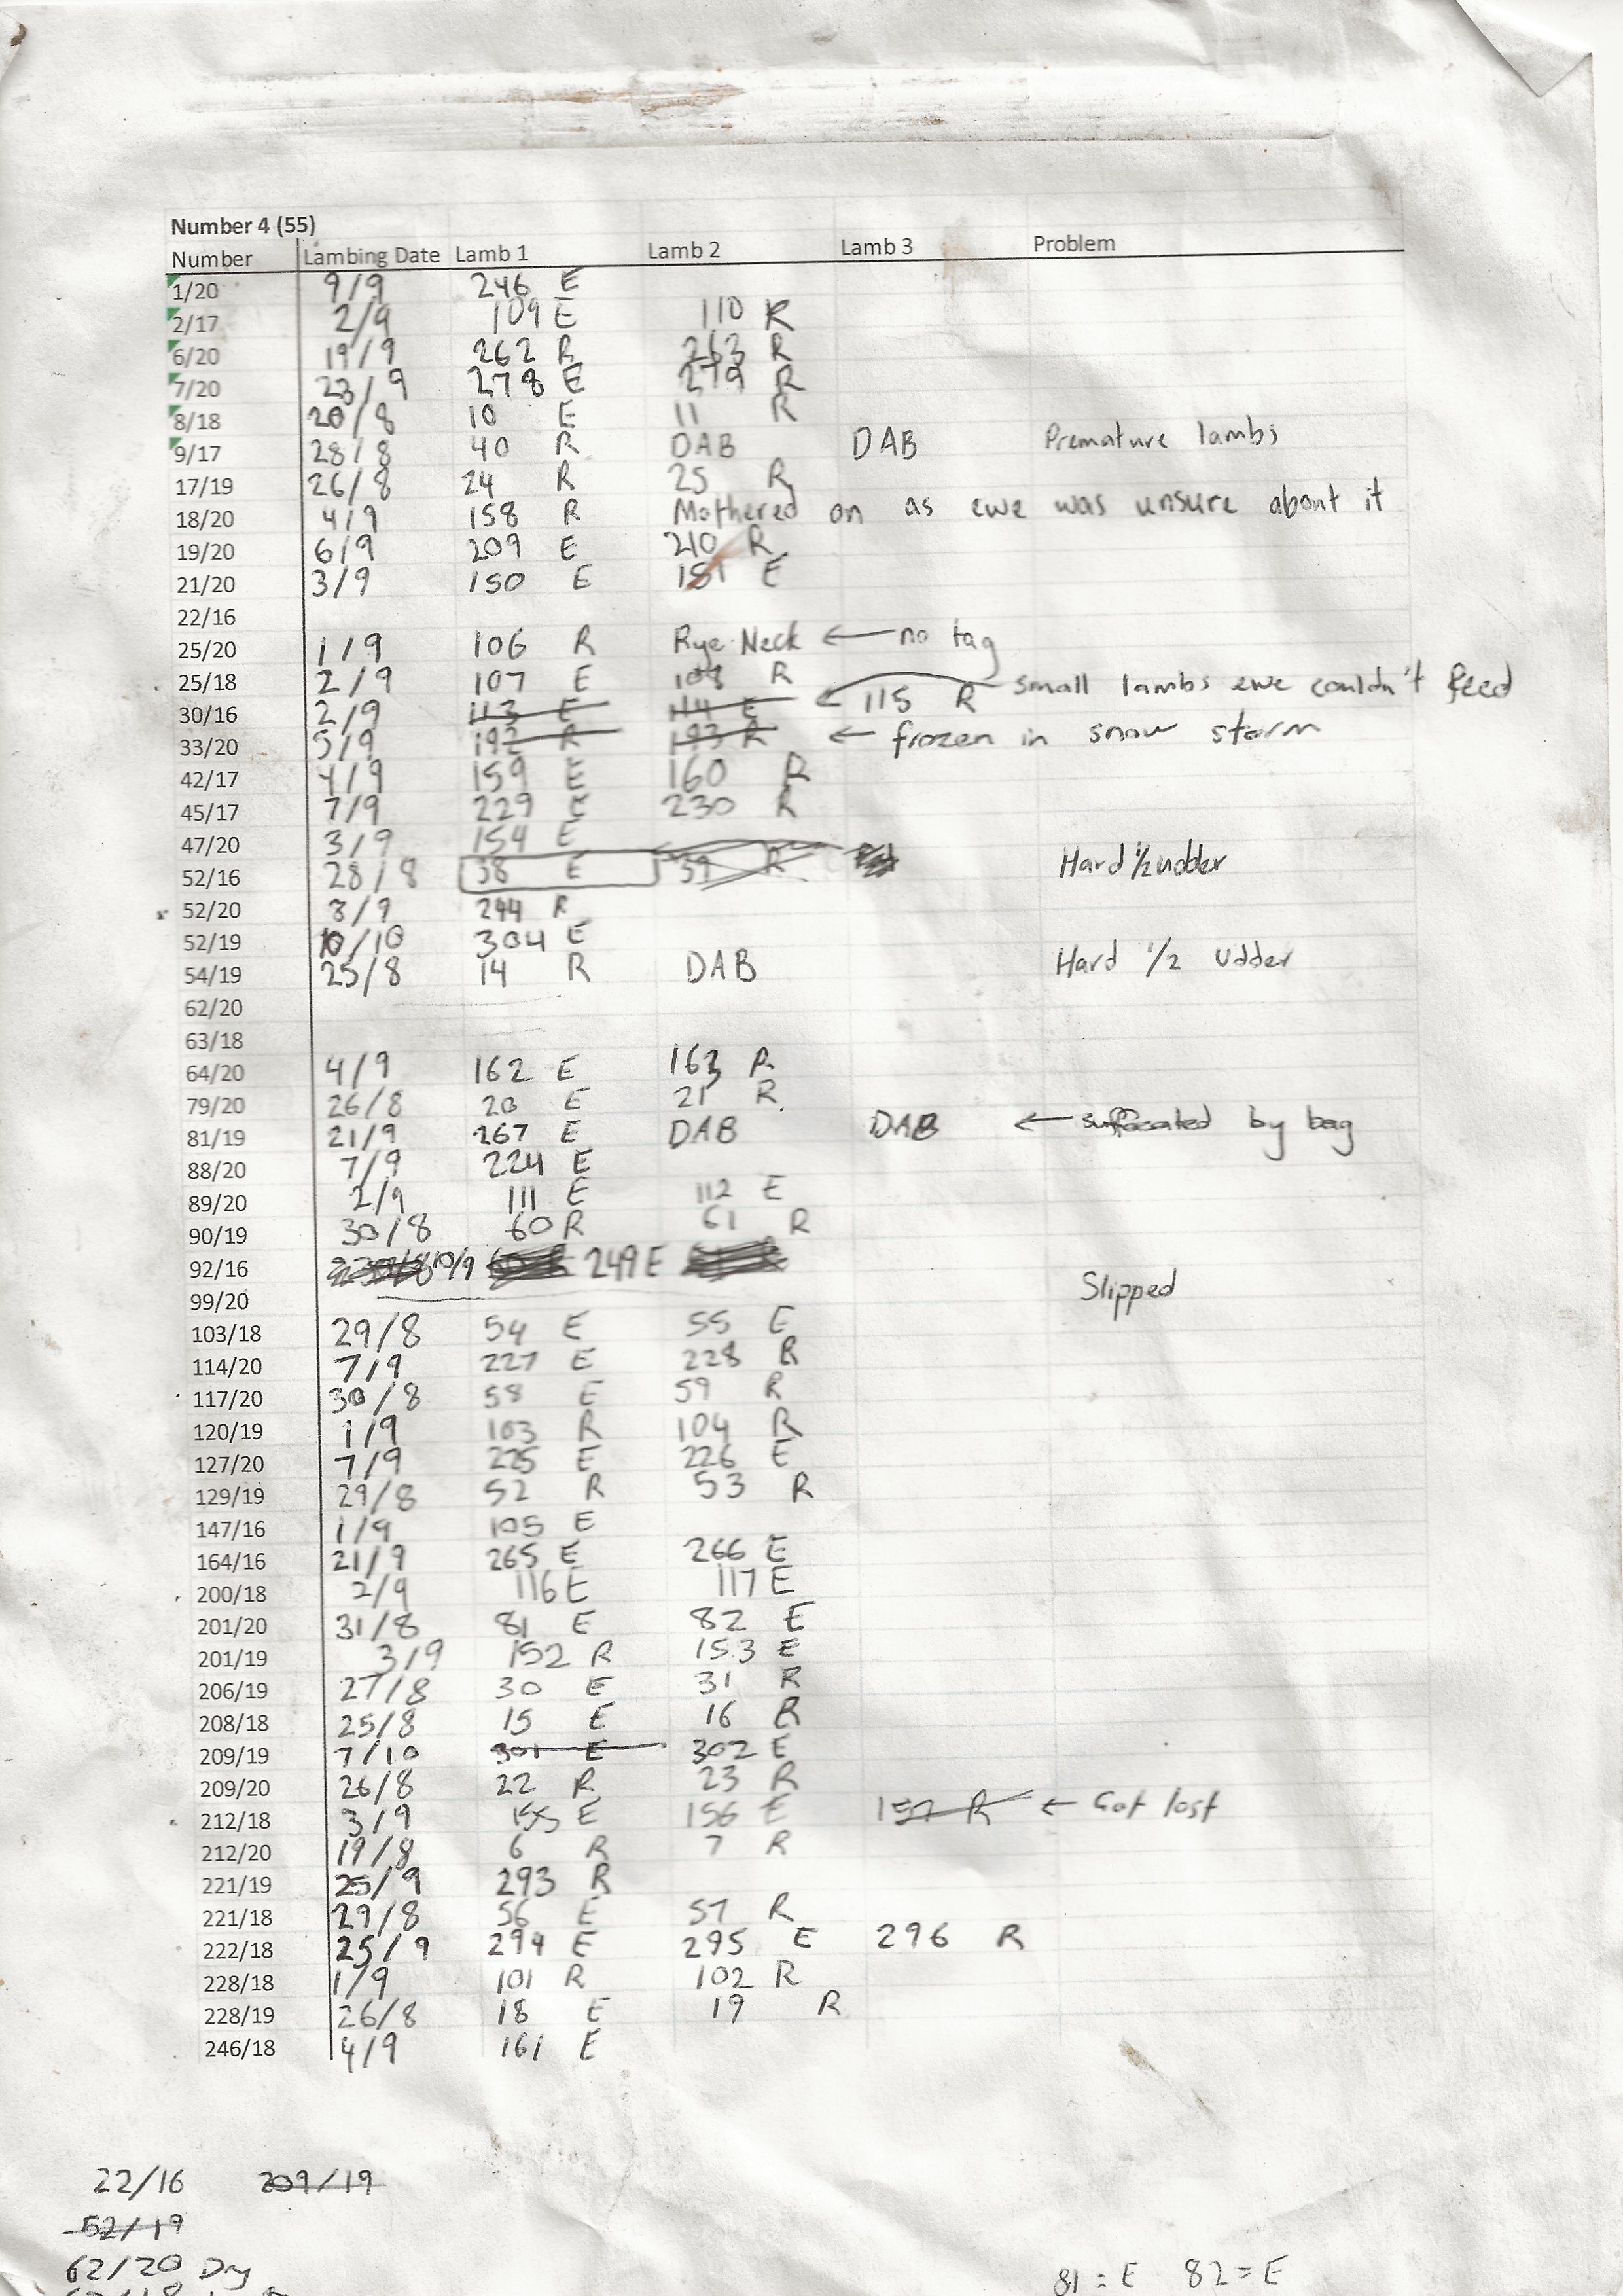 Number 4 (55)
Number Lambing Date Lamb 1 Lamb 2 Lamb 3 Problem
1/20 9/9 246 E
2/17 2/9 109 E 110 R
6/20 19/9 262 R 263 R
7/20 23/9 278 E 279 R
8/18 20/8 10 E 11 R
9/17 28/8 40 R DAB DAB Premature lambs
17/19 26/8 24 R 25 R
18/20 4/9 158 R Mothered on as ewe was unsure about it
19/20 6/9 209 E 210 R
21/20 3/9 150 E 151 E
22/16
25/20 1/9 106 R Rye Neck ← no tag
25/18 2/9 107 E 108 R
30/16 2/9 113 E 114 E ← 115 R small lambs ewe couldn't feed
33/20 5/9 192 R 193 R ← frozen in snow storm
42/17 4/9 159 E 160 R
45/17 7/9 229 E 230 R
47/20 3/9 154 E
52/16 28/8 38 E 39 R Hard 1/2 udder
52/20 8/9 244 R
52/19 10/10 304 E
54/19 25/8 14 R DAB Hard 1/2 Udder
62/20
63/18
64/20 4/9 162 E 163 R
79/20 26/8 20 E 21 R
81/19 21/9 267 E DAB DAB ← suffocated by bag
88/20 7/9 224 E
89/20 2/9 111 E 112 E
90/19 30/8 60 R 61 R
92/16 10/9 249 E
99/20 Slipped
103/18 29/8 54 E 55 E
114/20 7/9 227 E 228 R
117/20 30/8 58 E 59 R
120/19 1/9 103 R 104 R
127/20 7/9 225 E 226 E
129/19 29/8 52 R 53 R
147/16 1/9 105 E
164/16 21/9 265 E 266 E
200/18 2/9 116 E 117 E
201/20 31/8 81 E 82 E
201/19 3/9 152 R 153 E
206/19 27/8 30 E 31 R
208/18 25/8 15 E 16 R
209/19 7/10 301 E 302 E
209/20 26/8 22 R 23 R
212/18 3/9 155 E 156 E 157 R ← Got lost
212/20 19/8 6 R 7 R
221/19 25/9 293 R
221/18 29/8 56 E 57 R
222/18 25/9 294 E 295 E 296 R
228/18 1/9 101 R 102 R
228/19 26/8 18 E 19 R
246/18 4/9 161 E
22/16 209/19
52/19
62/20 Dry
81 = E 82 = E